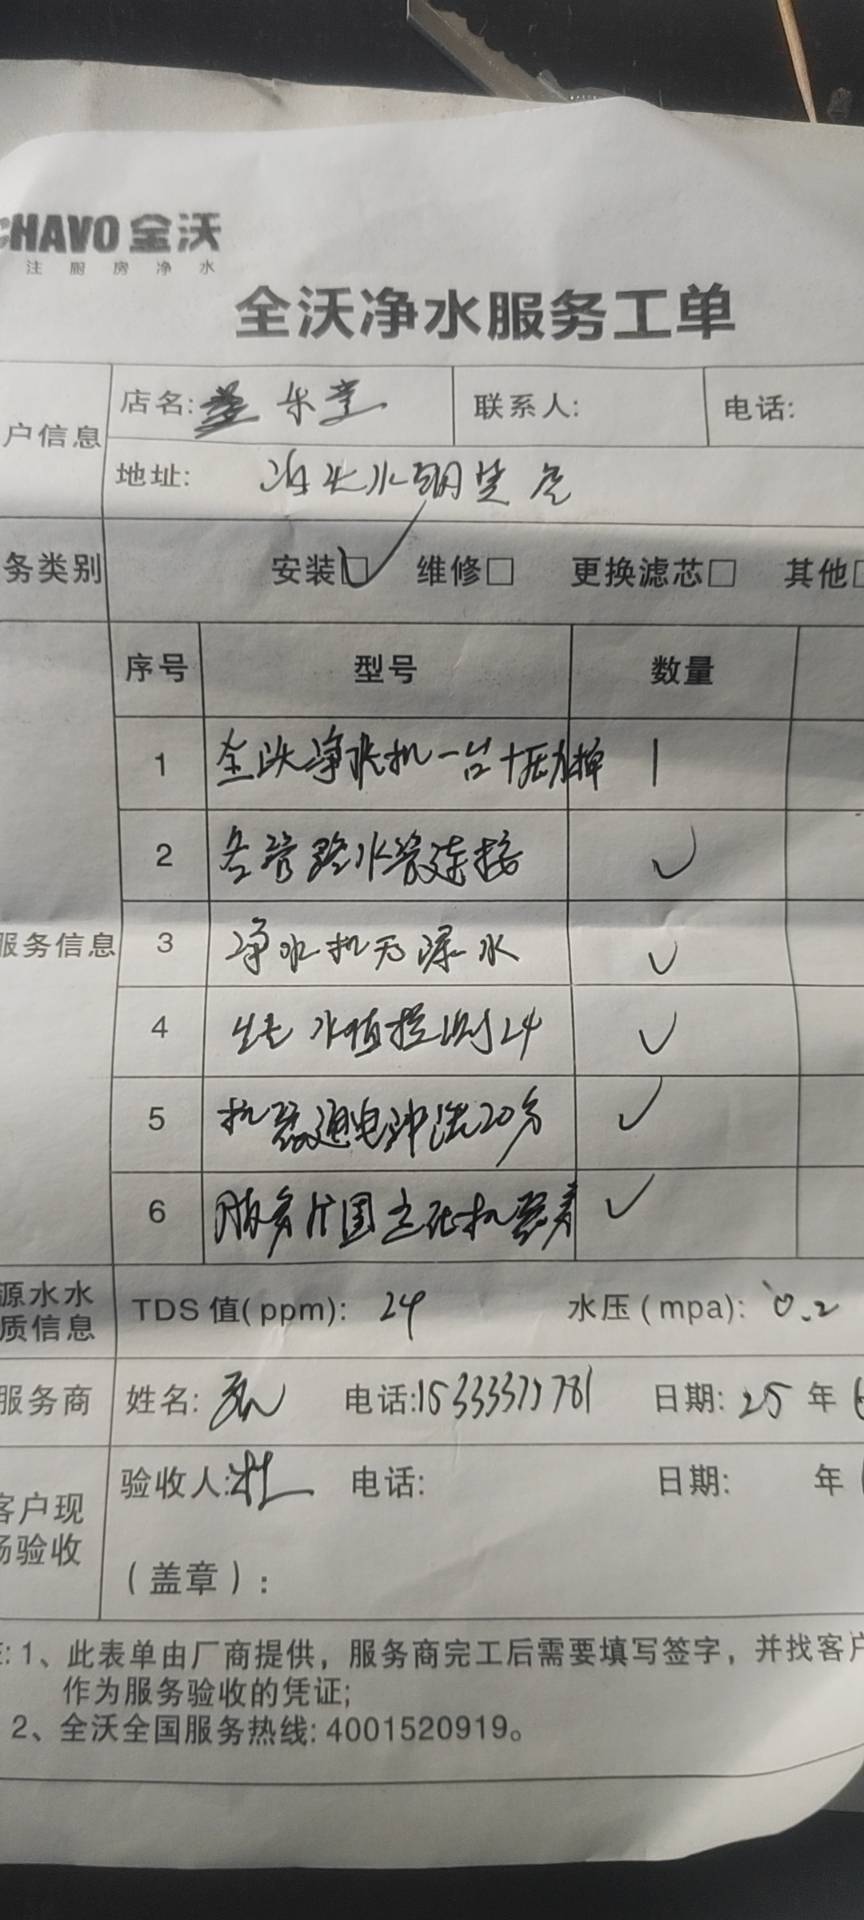 CHAVO 全沃
注厨房净水
全沃净水服务工单
户信息 店名: 联系人: 电话:
地址:
务类别 安装☑ 维修□ 更换滤芯□ 其他□
序号 型号 数量
1 全沃净水机一台十压力桶 1
2 各管路水管连接 ✓
服务信息 3 净水机无漏水 ✓
4 水值检测24 ✓
5 机器通电冲洗20分 ✓
6 服务 机器 ✓
源水水质信息 TDS 值(ppm): 24 水压(mpa): 0.2
服务商 姓名: 电话: 日期: 25 年
客户现场验收 验收人:杜 电话: 日期: 年
(盖章):
注: 1、此表单由厂商提供，服务商完工后需要填写签字，并找客户
作为服务验收的凭证;
2、全沃全国服务热线: 4001520919。